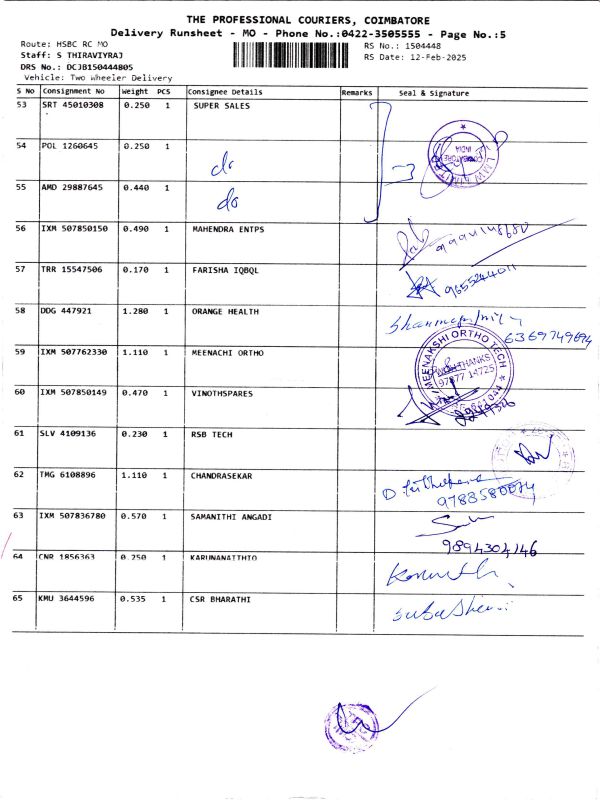 THE PROFESSIONAL COURIERS, COIMBATORE
Delivery Runsheet - MO - Phone No.:0422-3505555 - Page No.:5
Route: HSBC RC MO
RS No.: 1504448
Staff: S THIRAVIYRAJ
RS Date: 12-Feb-2025
DRS No.: DCJB150444805
Vehicle: Two Wheeler Delivery
S No Consignment No Weight PCS Consignee Details Remarks Seal & Signature
53 SRT 45010308 0.250 1 SUPER SALES
54 POL 1260645 0.250 1 do
55 AMD 29887645 0.440 1 do
COIMBATORE
INDIA
56 IXM 507850150 0.490 1 MAHENDRA ENTPS
57 TRR 15547506 0.170 1 FARISHA IQBQL
9655244011
58 DDG 447921 1.280 1 ORANGE HEALTH
6369749694
59 IXM 507762330 1.110 1 MEENACHI ORTHO
MEENAKSHI ORTHO TECH
WITH THANKS
97877 14725
60 IXM 507850149 0.470 1 VINOTHSPARES
61 SLV 4109136 0.230 1 RSB TECH
62 TMG 6108896 1.110 1 CHANDRASEKAR
63 IXM 507836780 0.570 1 SAMANITHI ANGADI
9894304146
64 CNR 1856363 0.250 1 KARUNANATTHIO
65 KMU 3644596 0.535 1 CSR BHARATHI